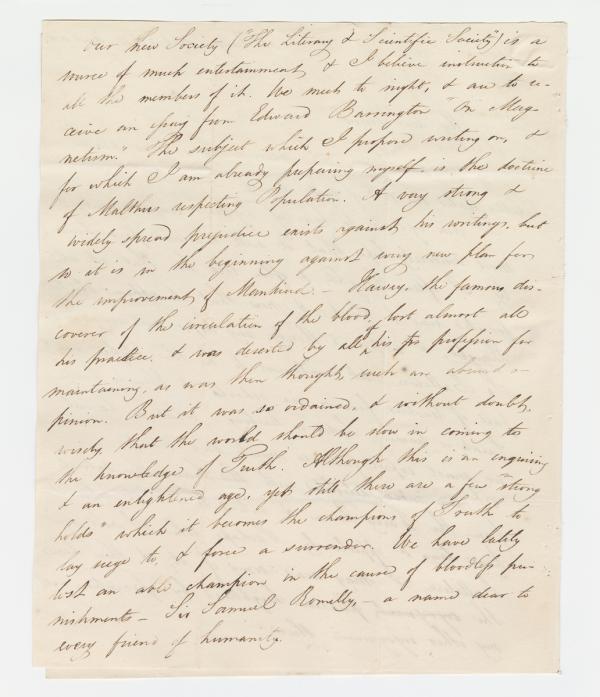 Our New Society ("The Literary & Scientific Society") is a
source of much entertainment, & I believe instruction to
all the members of it. We meet to night, & are to re-
ceive an essay from Edward Barrington "On Mag-
netism." The subject which I propose writing on, &
for which I am already preparing myself is the doctrine
of Malthus respecting Population. A very strong &
widely spread prejudice exists against his writings, but
so it is in the beginning against every new plan for
the improvement of Mankind. – Harvey, the famous dis-
coverer of the circulation of the blood, lost almost all
his practice, & was deserted by all of his profession for
maintaining, as was then thought, such an absurd o-
pinion. But it was so ordained, & without doubt,
wisely, that the world should be slow in coming to
the knowledge of Truth. Although this is an enquiring
& an enlightened age, yet still there are a few "strong
holds" which it becomes the champions of Truth to
lay siege to, & force a surrender. We have lately
lost an able champion in the cause of bloodless pu-
nishments – Sir Samuel Romelly, – a name dear to
every friend of humanity.